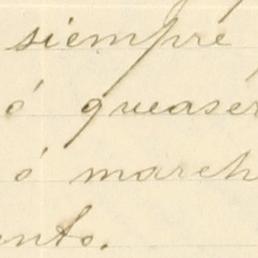 siempre
ó queaser
ó march
ento.